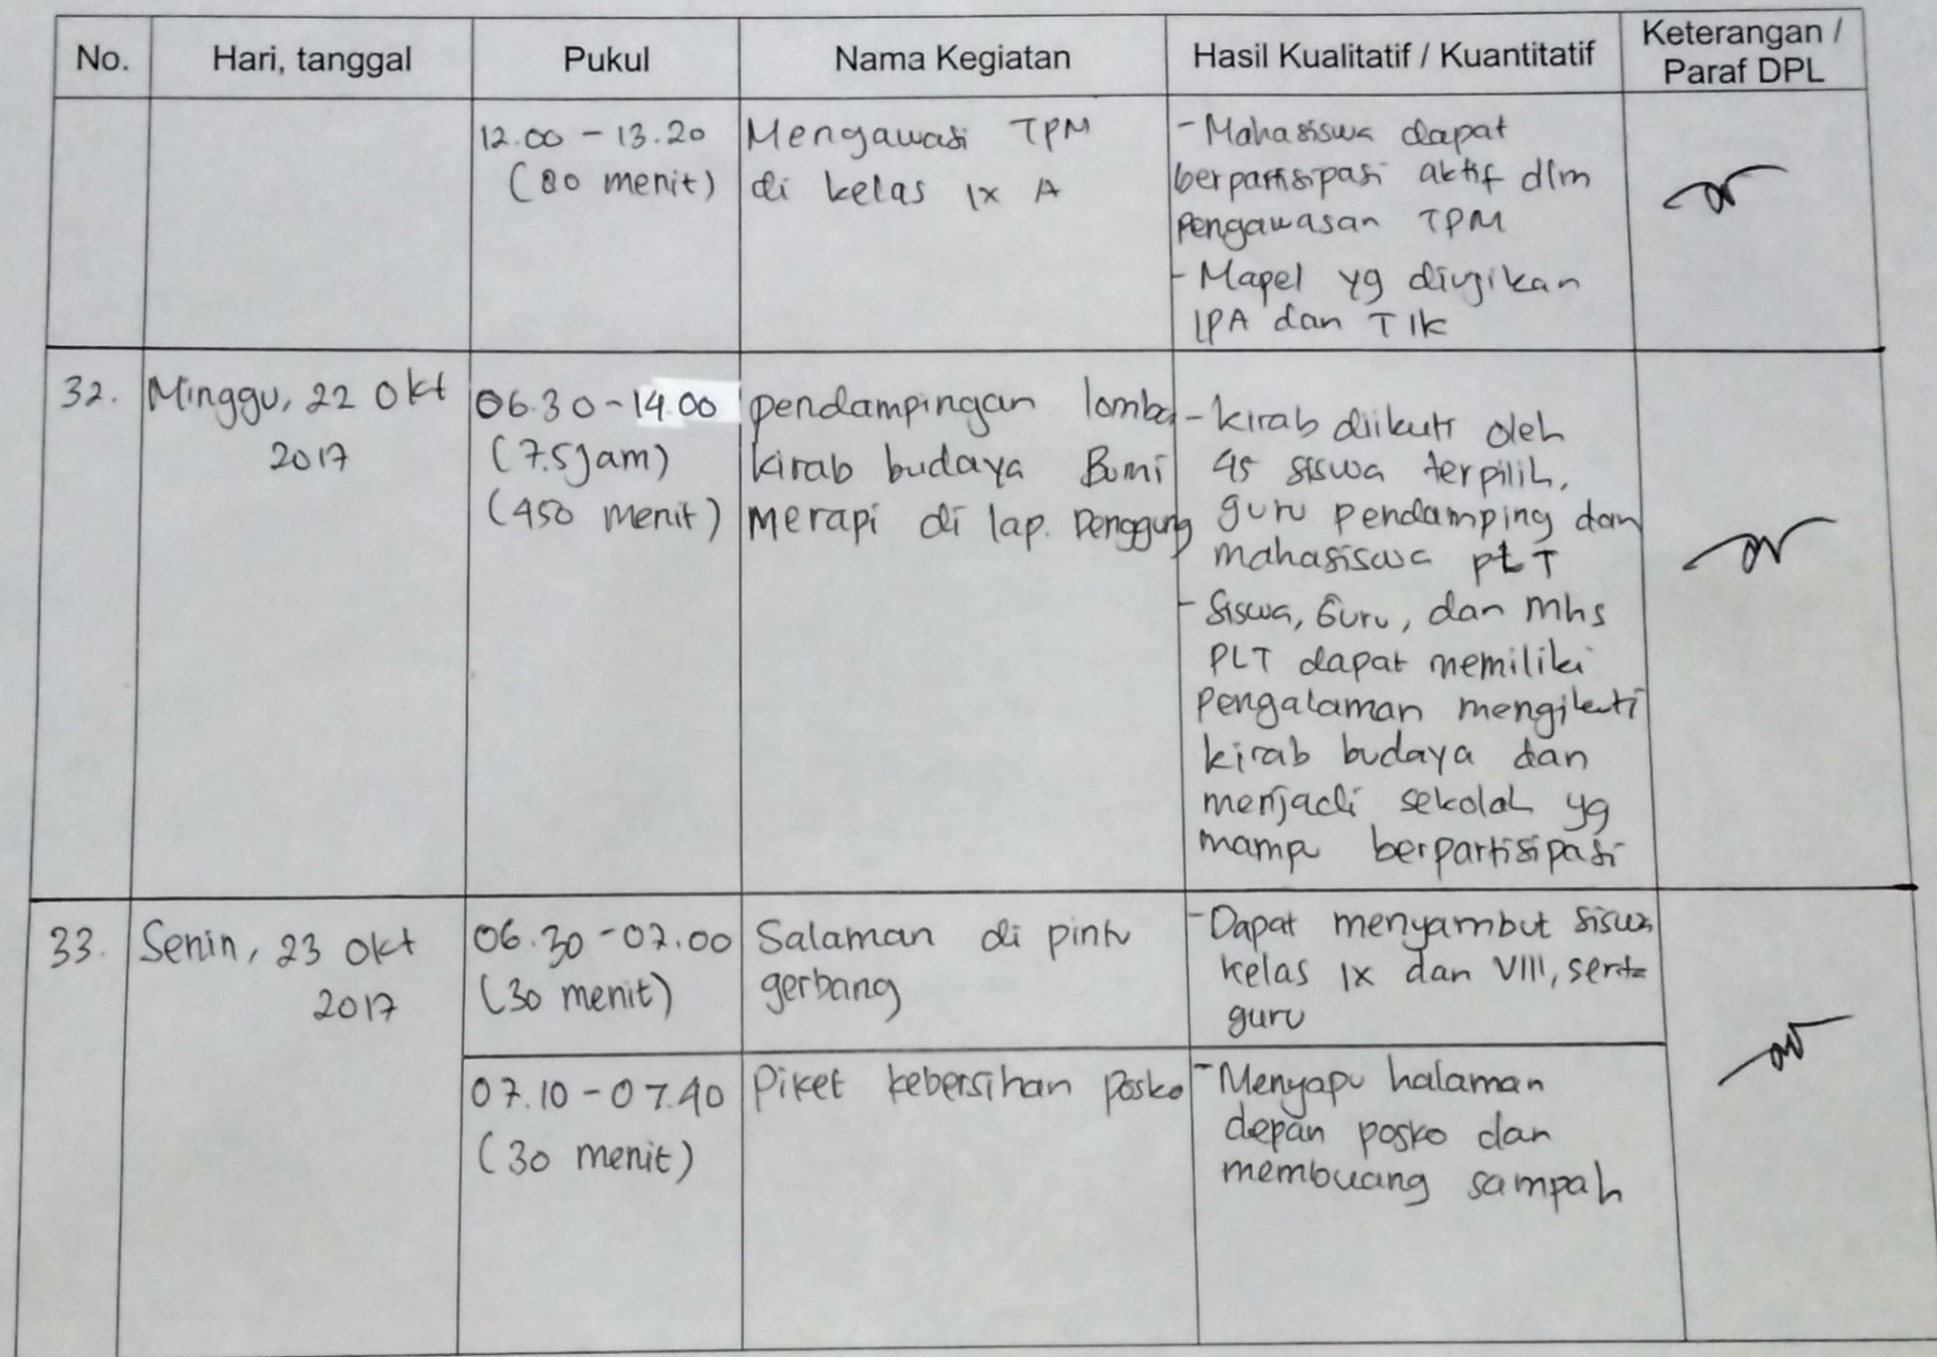 No.
Hari, tanggal
Pukul
Nama Kegiatan
Hasil Kualitatif / Kuantitatif
Keterangan /
Paraf DPL
12.00 - 13.20
(80 menit)
Mengawasi TPM
di kelas IX A
- Mahasiswa dapat
berpartisipasi aktif dlm
Pengawasan TPM
- Mapel yg diujikan
IPA dan TIK
32.
Minggu, 22 Okt
2017
06.30 - 14.00
(7.5 Jam)
(450 menit)
pendampingan lomba
kirab budaya Bumi
merapi di lap. Denggung
- kirab diikuti oleh
45 siswa terpilih,
guru pendamping dan
mahasiswa PLT
- Siswa, Guru, dan Mhs
PLT dapat memiliki
Pengalaman mengikuti
kirab budaya dan
menjadi sekolah yg
mampu berpartisipasi
33.
Senin, 23 Okt
2017
06.30 - 07.00
(30 menit)
Salaman di pintu
gerbang
- Dapat menyambut siswa
kelas IX dan VIII, serta
guru
07.10 - 07.40
(30 menit)
Piket kebersihan Posko
- Menyapu halaman
depan posko dan
membuang sampah